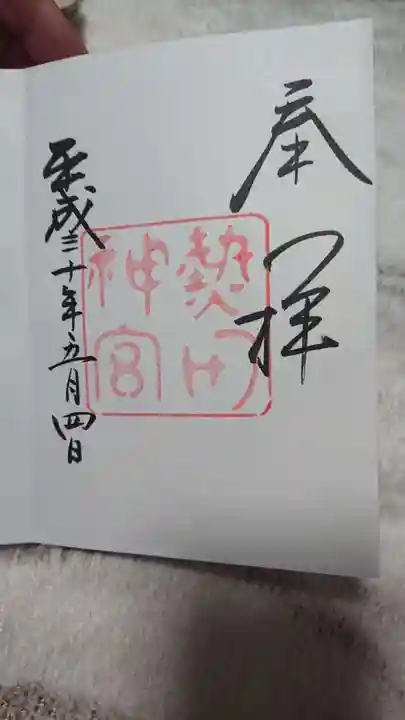 奉拝
熱田
神宮
平成三十年五月四日